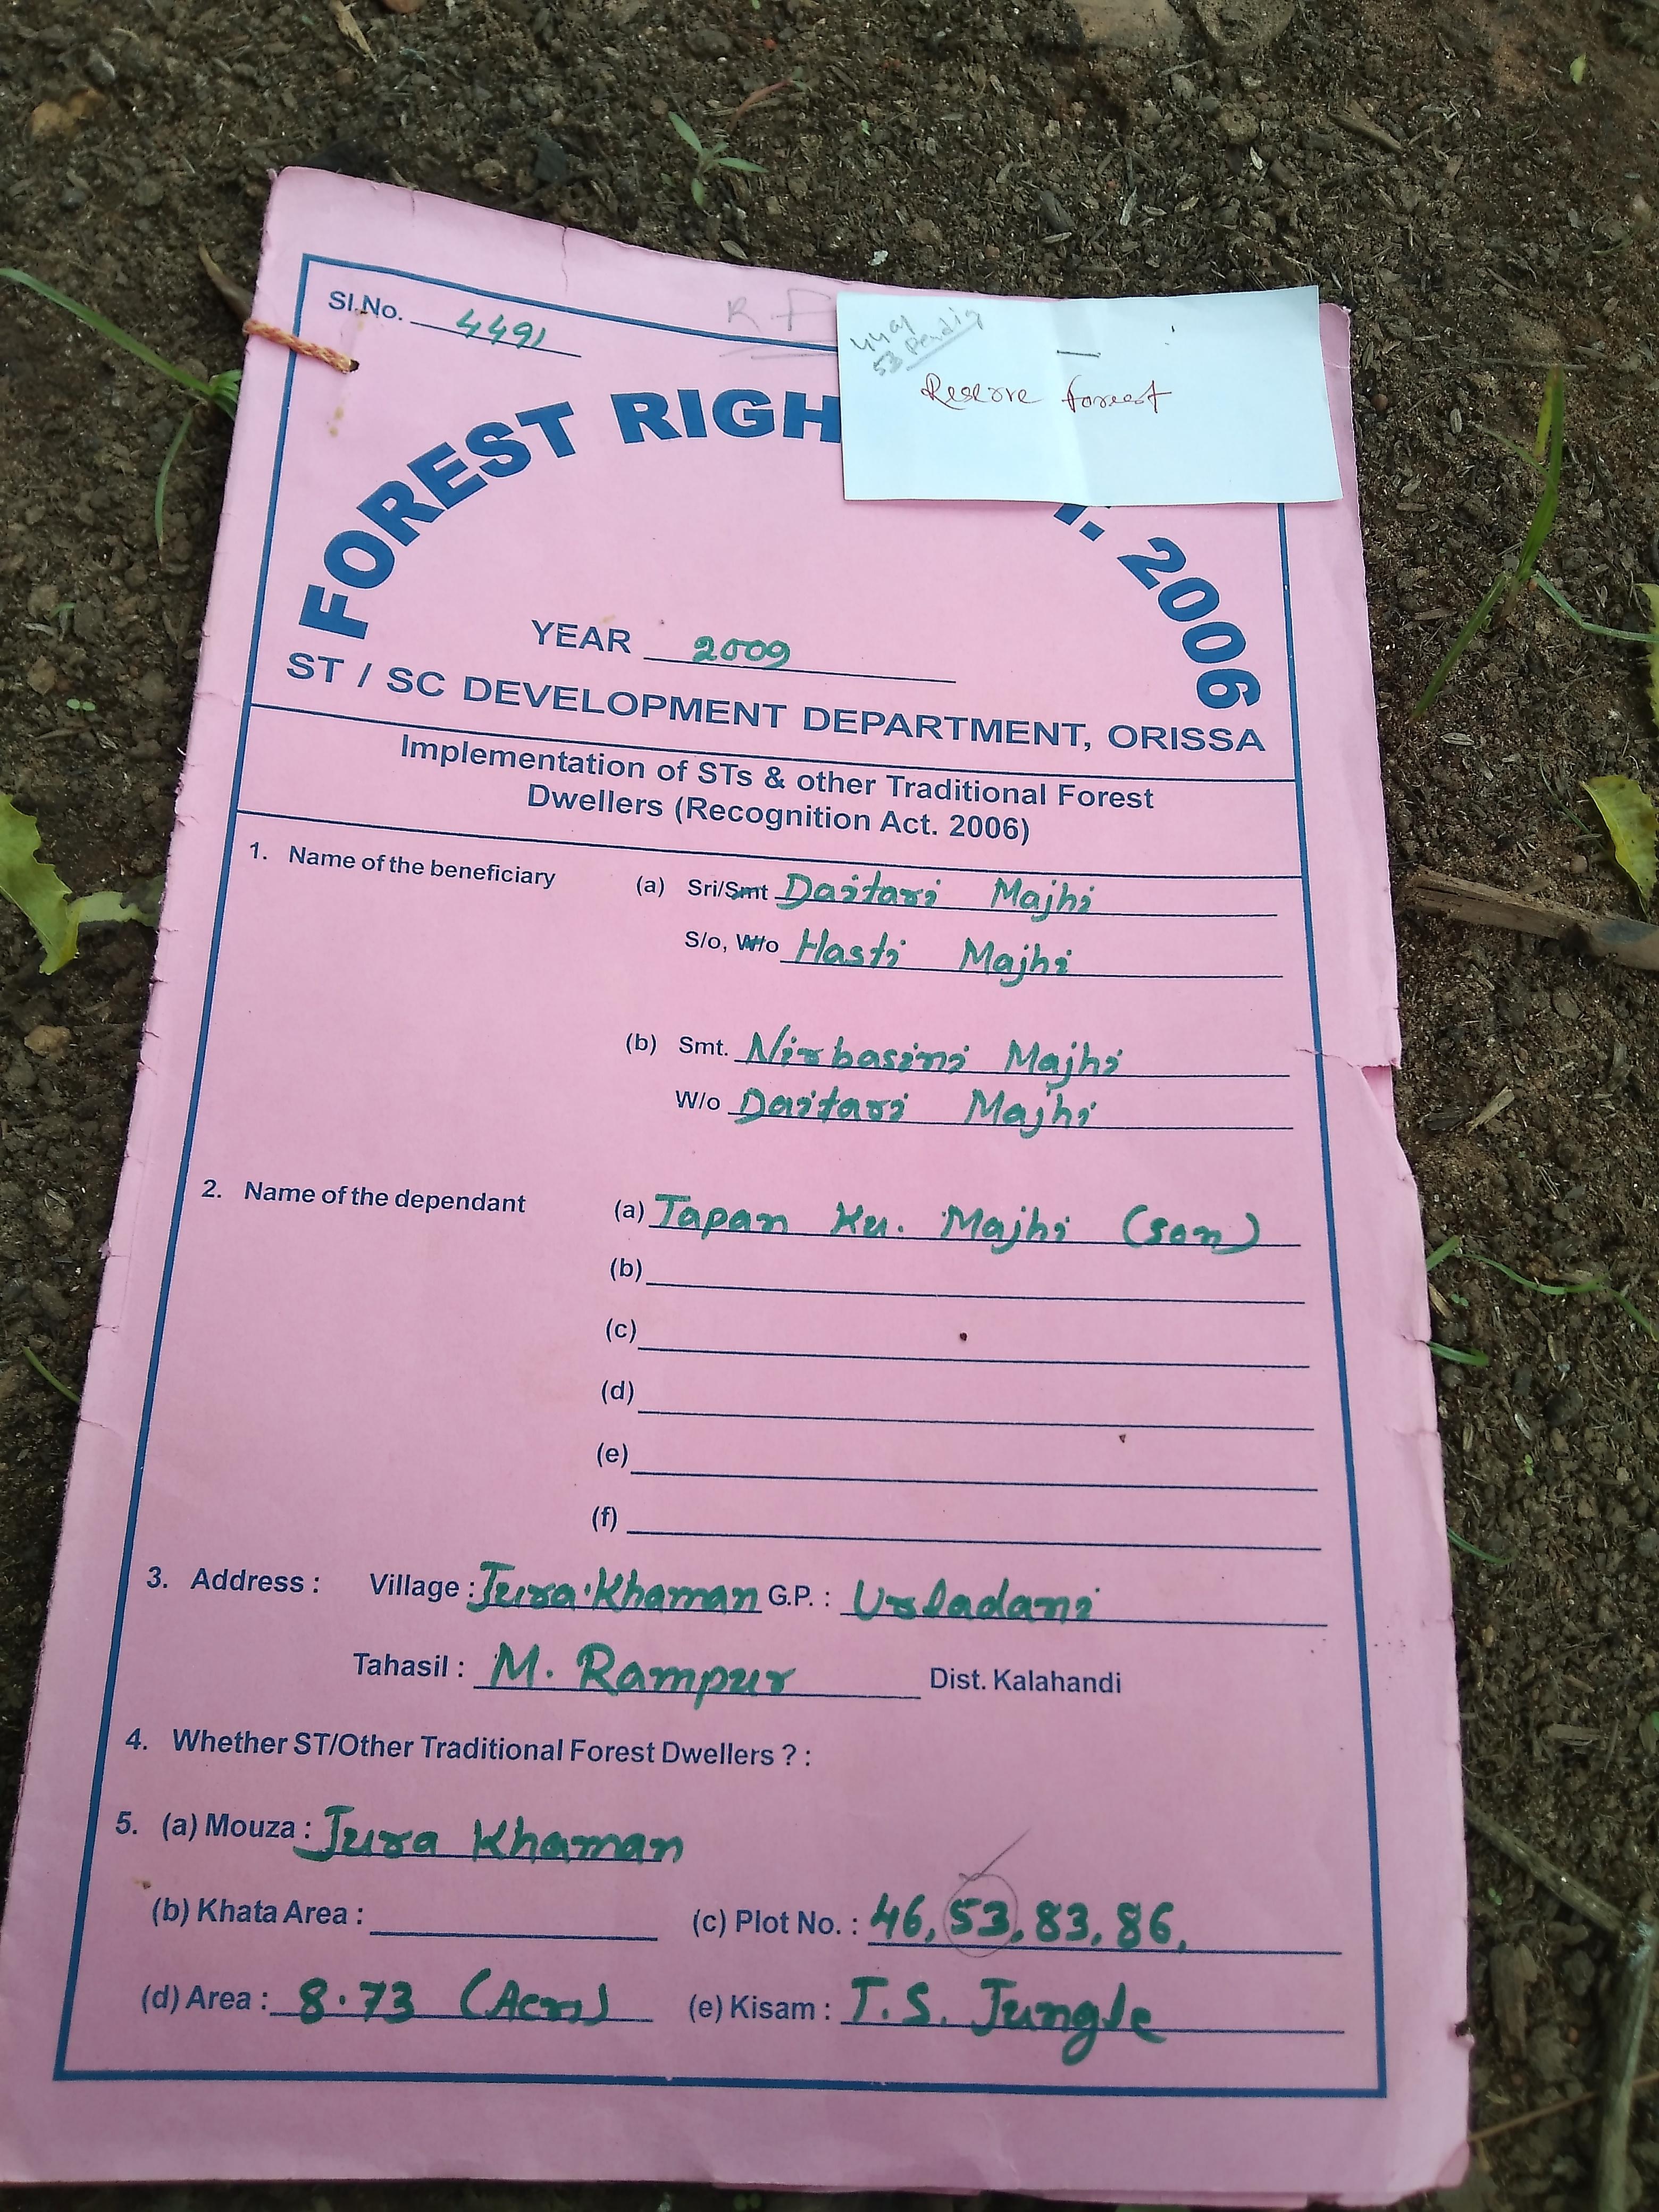 Sl.No. 4491
R F
53 Pending
Reserve forest
FOREST RIGH T. 2006
YEAR 2009
ST / SC DEVELOPMENT DEPARTMENT, ORISSA
Implementation of STs & other Traditional Forest
Dwellers (Recognition Act. 2006)
1. Name of the beneficiary (a) Sri/Smt Daitari Majhi
S/o, W/o Hasti Majhi
(b) Smt. Nirbasini Majhi
W/o Daitari Majhi
2. Name of the dependant (a) Tapan Ku. Majhi (son)
(b)
(c)
(d)
(e)
(f)
3. Address : Village : Jura Khaman G.P. : Urladani
Tahasil : M. Rampur Dist. Kalahandi
4. Whether ST/Other Traditional Forest Dwellers ? :
5. (a) Mouza : Jura Khaman
(b) Khata Area : (c) Plot No. : 46, 53, 83, 86,
(d) Area : 8.73 (Acrs) (e) Kisam : T.S. Jungle